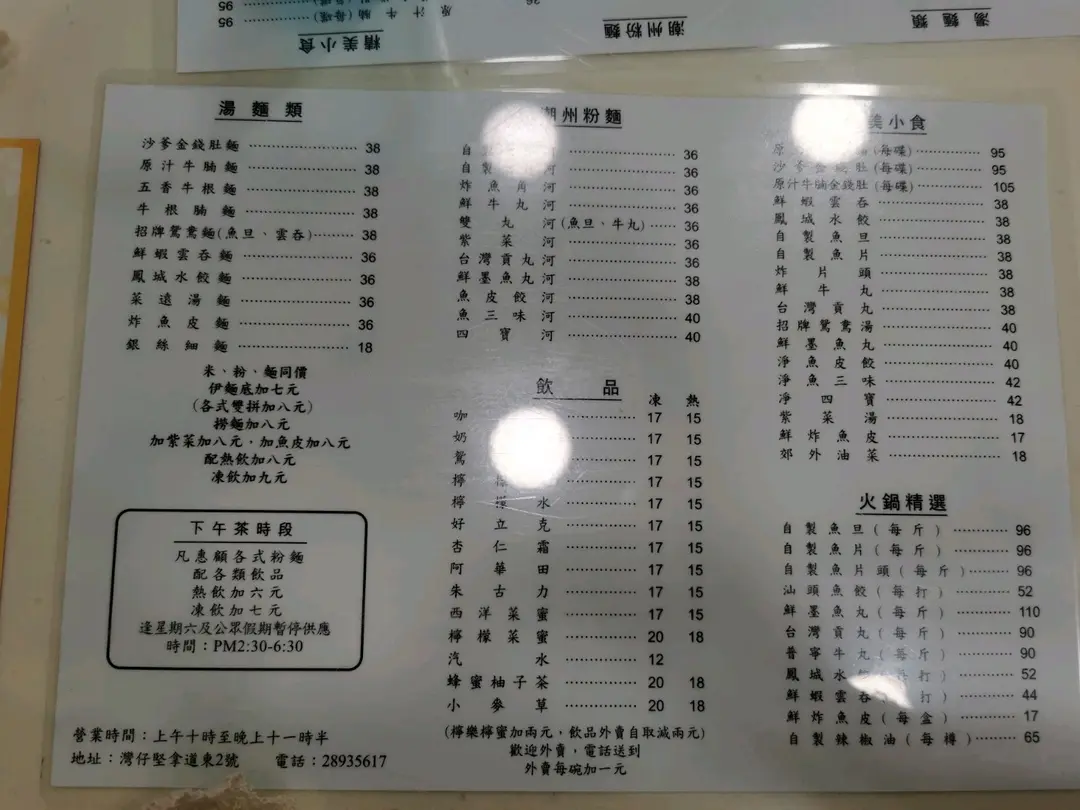 精美小食
潮州粉麵
湯麵類
原汁牛腩(每碟) 95
95
36
湯麵類
沙爹金錢肚麵 38
原汁牛腩麵 38
五香牛根麵 38
牛根腩麵 38
招牌鴛鴦麵(魚旦、雲吞) 38
鮮蝦雲吞麵 36
鳳城水餃麵 36
菜遠湯麵 36
炸魚皮麵 36
銀絲細麵 18
米、粉、麵同價
伊麵底加七元
(各式雙拼加八元)
撈麵加八元
加紫菜加八元,加魚皮加八元
配熱飲加八元
凍飲加九元
下午茶時段
凡惠顧各式粉麵
配各類飲品
熱飲加六元
凍飲加七元
逢星期六及公眾假期暫停供應
時間:PM2:30-6:30
營業時間:上午十時至晚上十一時半
地址:灣仔堅拿道東2號 電話:28935617
潮州粉麵
自 36
自製 河 36
炸魚角河 36
鮮牛丸河 36
雙丸河(魚旦、牛丸) 36
紫菜河 36
台灣貢丸河 36
鮮墨魚丸河 38
魚皮餃河 38
魚三味河 40
四寶河 40
飲品
凍 熱
咖 17 15
奶 17 15
鴛 17 15
檸 17 15
檸檬水 17 15
好立克 17 15
杏仁霜 17 15
阿華田 17 15
朱古力 17 15
西洋菜蜜 17 15
檸檬菜蜜 20 18
汽水 12
蜂蜜柚子茶 20 18
小麥草 20 18
(檸樂檸蜜加兩元,飲品外賣自取減兩元)
歡迎外賣,電話送到
外賣每碗加一元
美小食
原 (每碟) 95
沙爹金錢肚(每碟) 95
原汁牛腩金錢肚(每碟) 105
鮮蝦雲吞 38
鳳城水餃 38
自製魚旦 38
自製魚片 38
炸片頭 38
鮮牛丸 38
台灣貢丸 38
招牌鴛鴦湯 40
鮮墨魚丸 40
淨魚皮餃 40
淨魚三味 42
淨四寶 42
紫菜湯 18
鮮炸魚皮 17
郊外油菜 18
火鍋精選
自製魚旦(每斤) 96
自製魚片(每斤) 96
自製魚片頭(每斤) 96
汕頭魚餃(每打) 52
鮮墨魚丸(每斤) 110
台灣貢丸(每斤) 90
普寧牛丸(每斤) 90
鳳城水 打) 52
鮮蝦雲吞 打) 44
鮮炸魚皮(每盒) 17
自製辣椒油(每樽) 65